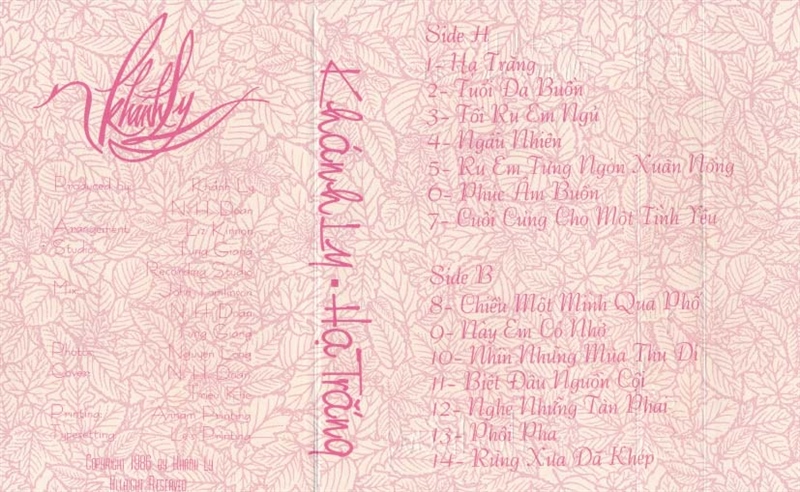 Khánh Ly
Produced by: Khánh Ly
N. H. Đoàn
Arrangement
Studio: Tùng Giang
Recording Studio
Mix: John Tomlinson
N. H. Đoàn
Tùng Giang
Photos: Nguyễn Long
Cover: N. H. Đoàn
Printing: Annam Printing
Typesetting: Printing
Copyright 1986 by Khánh Ly
All rights Reserved
Khánh Ly • Hạ Trắng
Side A
1- Hạ Trắng
2- Tuổi Đá Buồn
3- Tôi Ru Em Ngủ
4- Ngẫu Nhiên
5- Ru Em Từng Ngón Xuân Nồng
6- Phúc Âm Buồn
7- Cuối Cùng Cho Một Tình Yêu
Side B
8- Chiều Một Mình Qua Phố
9- Này Em Có Nhớ
10- Nhìn Những Mùa Thu Đi
11- Biết Đâu Nguồn Cội
12- Nghe Những Tàn Phai
13- Phôi Pha
14- Rừng Xưa Đã Khép